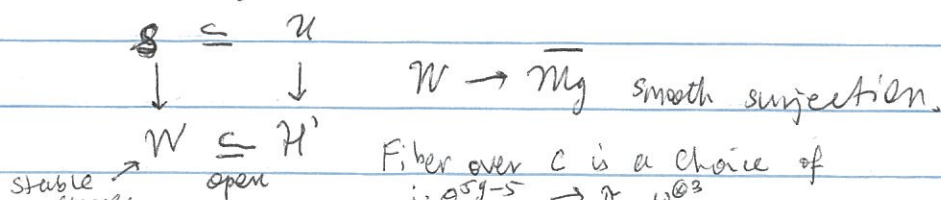 S ⊆ U
↓ ↓ W → \overline{Mg} smooth surjection.
W ⊆ H'
stable open Fiber over C is a choice of
i: O^{5g-5} → π ω^{⊗3}